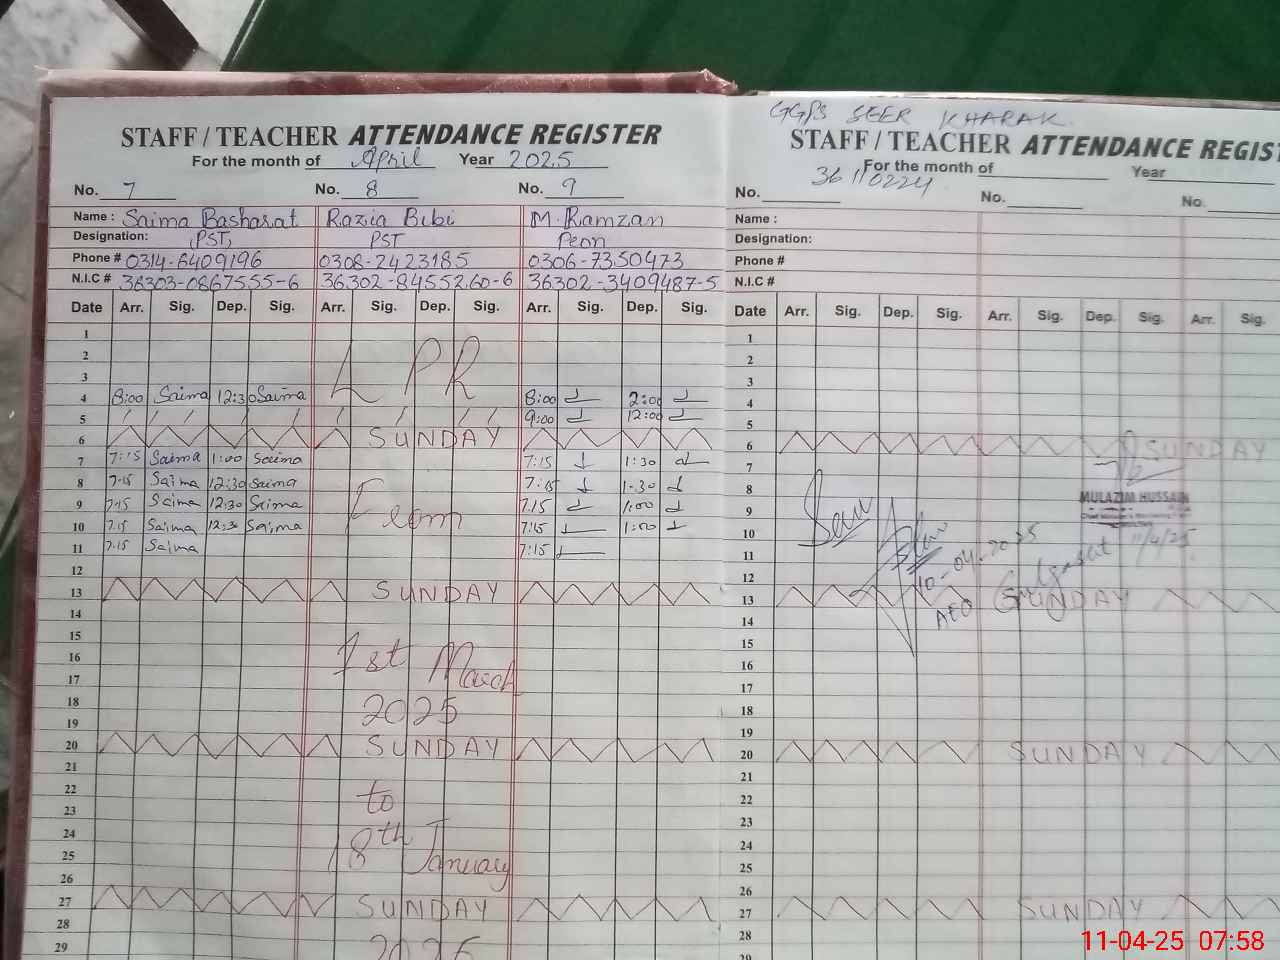 STAFF / TEACHER ATTENDANCE REGISTER
For the month of April Year 2025
No. 7 No. 8 No. 9
Name : Saima Basharat Razia Bibi M. Ramzan
Designation: (PST) PST Peon
Phone # 0314-6409196 0308-2423185 0306-7350473
N.I.C # 36303-0867555-6 36302-8455260-6 36302-3409487-5
Date Arr. Sig. Dep. Sig. Arr. Sig. Dep. Sig. Arr. Sig. Dep. Sig.
1
2
LPR
3
4 8:00 Saima 12:30 Saima 8:00 2:00
5 9:00 12:00
6 SUNDAY
7 7:15 Saima 1:00 Saima 7:15 1:30
8 7:15 Saima 12:30 Saima 7:15 1:30
9 7:15 Saima 12:30 Saima 7:15 1:00
From
10 7:15 Saima 12:30 Saima 7:15 1:00
11 7:15 Saima 7:15
12
13 SUNDAY
14
15
16 1st March
17
18 2025
19
20 SUNDAY
21
22 to
23
24 18th January
25
26
27 SUNDAY
28
29 2026
GGPS SEER KHARAK
STAFF / TEACHER ATTENDANCE REGIST
For the month of Year
36110224
No. No. No.
Name :
Designation:
Phone #
N.I.C #
Date Arr. Sig. Dep. Sig. Arr. Sig. Dep. Sig. Arr. Sig.
1
2
3
4
5
6 SUNDAY
7
8
MULAZIM HUSSAIN
9
10
11/4/25
11
10-04-2025
12
AEO Gulgasht
13 SUNDAY
14
15
16
17
18
19
20 SUNDAY
21
22
23
24
25
26
27 SUNDAY
28
29
11-04-25 07:58